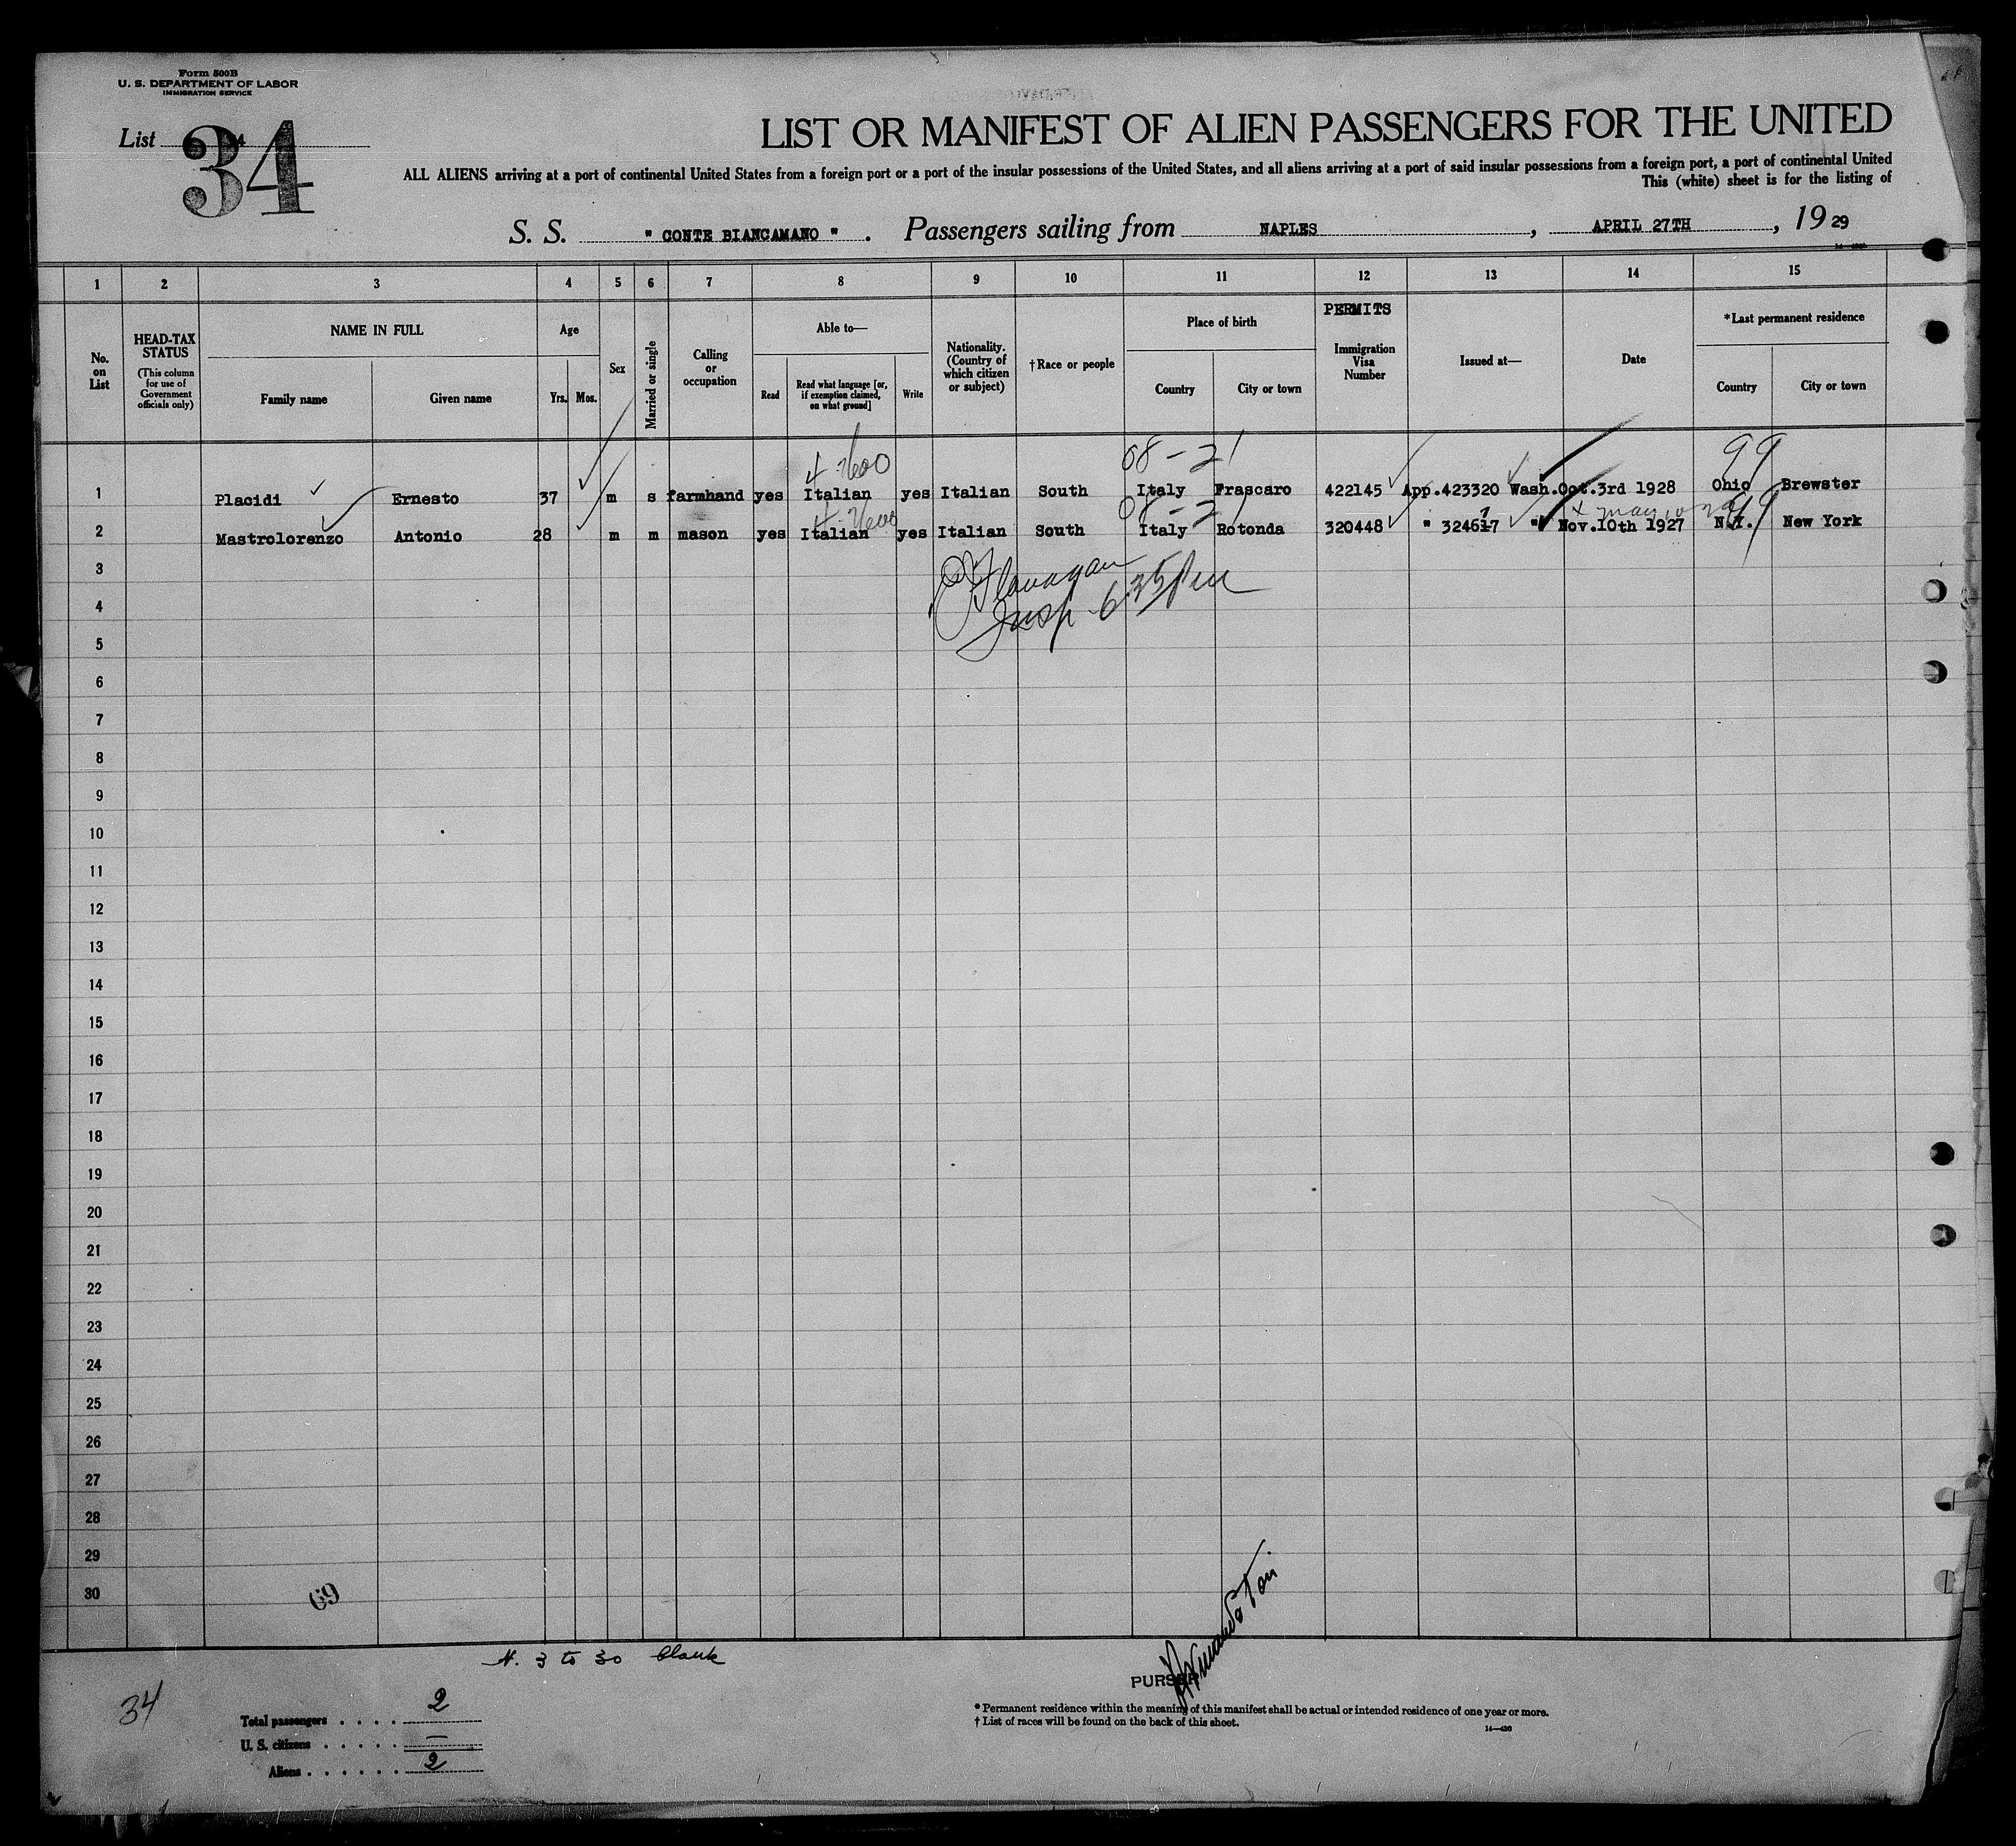 Form 500B
U. S. DEPARTMENT OF LABOR
IMMIGRATION SERVICE
List 34
LIST OR MANIFEST OF ALIEN PASSENGERS FOR THE UNITED
ALL ALIENS arriving at a port of continental United States from a foreign port or a port of the insular possessions of the United States, and all aliens arriving at a port of said insular possessions from a foreign port, a port of continental United
This (white) sheet is for the listing of
S. S. " CONTE BIANCAMANO " . Passengers sailing from NAPLES , APRIL 27TH , 19 29
1 2 3 4 5 6 7 8 9 10 11 12 13 14 15
No. on List
HEAD-TAX STATUS
(This column for use of Government officials only)
NAME IN FULL
Family name
Given name
Age
Yrs. Mos.
Sex
Married or single
Calling or occupation
Able to—
Read
Read what language [or, if exemption claimed, on what ground]
Write
Nationality. (Country of which citizen or subject)
†Race or people
Place of birth
Country
City or town
PERMITS
Immigration Visa Number
Issued at—
Date
*Last permanent residence
Country
City or town
08-21 99
1 Placidi Ernesto 37 m s farmhand yes Italian yes Italian South Italy Frascaro 422145 App.423320 Wash. Oct.3rd 1928 Ohio Brewster
2 Mastrolorenzo Antonio 28 m m mason yes Italian yes Italian South Italy Rotonda 320448 " 324617 " Nov.10th 1927 N.Y. New York
3
Flanagan
4
Insp 6 35 pm
5
6
7
8
9
10
11
12
13
14
15
16
17
18
19
20
21
22
23
24
25
26
27
28
29
30
69
N. 3 to 30 blank
PURSER
34
Total passengers . . . . 2
U. S. citizens . . . . . —
Aliens . . . . . . 2
* Permanent residence within the meaning of this manifest shall be actual or intended residence of one year or more.
† List of races will be found on the back of this sheet.
14—430